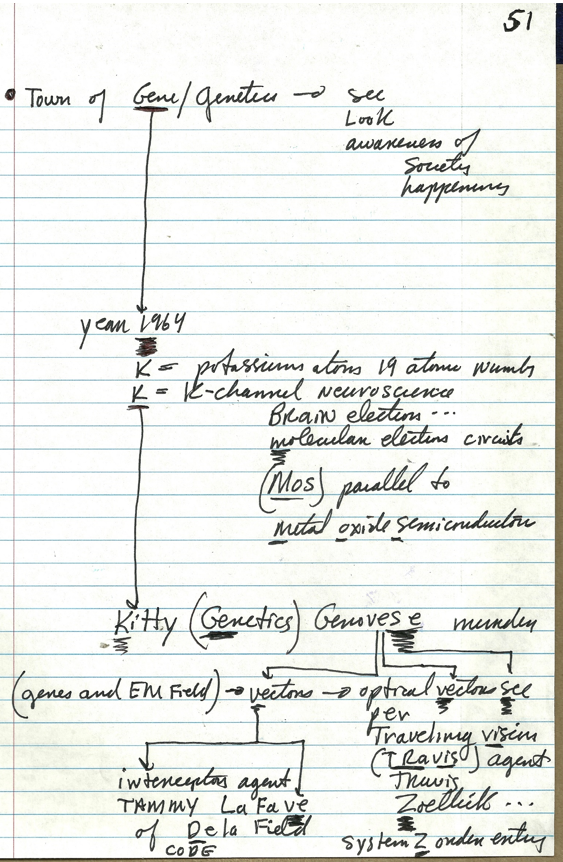 51
• Town of Gene/Genetics → see
Look
awareness of
Society
happenings
year 1964
K = potassium atoms 19 atomic numb
K = K-channel neuroscience
BRAIN election ...
molecular election circuits
(Mos) parallel to
metal oxide semiconductor
Kitty (Genetics) Genovese murder
(genes and EM Field) → vectors → optical vectors see
per
Traveling vision
(TRavis) agent
Travis
Zoellick ...
system Z order entry
interceptor agent
TAMMY La Fave
of Dela Field
CODE